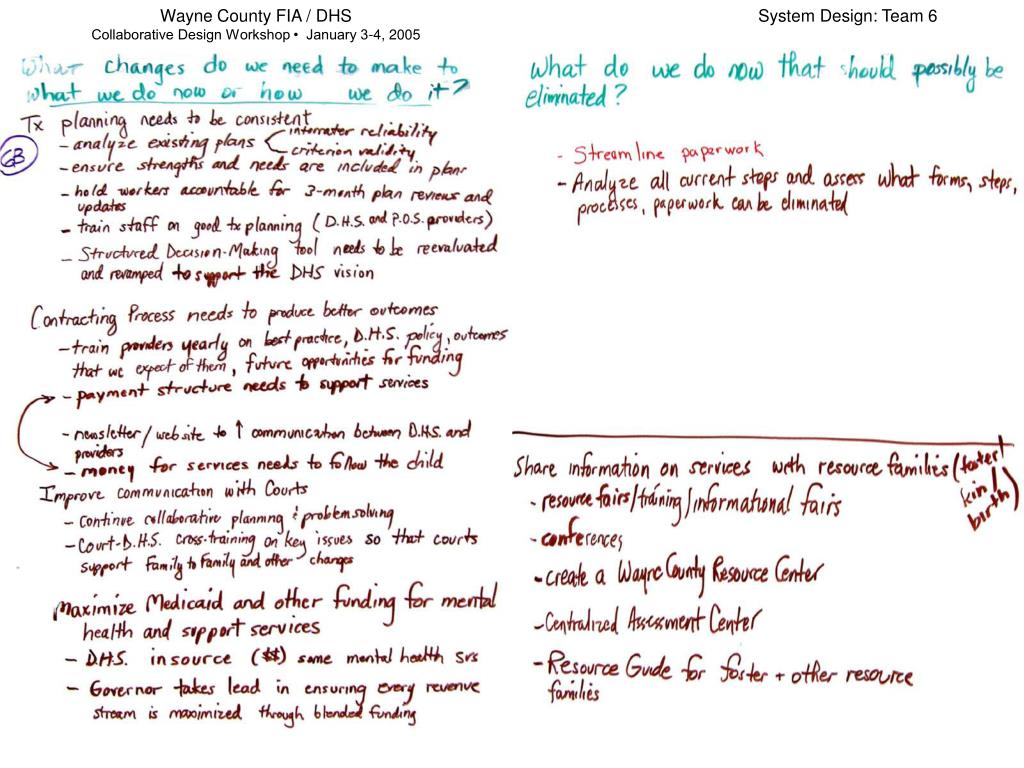 Wayne County FIA / DHS
Collaborative Design Workshop • January 3-4, 2005
System Design: Team 6
What changes do we need to make to
what we do now or how we do it?
Tx planning needs to be consistent
- analyze existing plans < interrater reliability
criterion validity
GB
- ensure strengths and needs are included in plans
- hold workers accountable for 3-month plan reviews and
updates
- train staff on good tx planning (D.H.S. and P.O.S. providers)
- Structured Decision-Making Tool needs to be reevaluated
and revamped to support the DHS vision
Contracting Process needs to produce better outcomes
- train providers yearly on best practice, D.H.S. policy, outcomes
that we expect of them, future opportunities for funding
- payment structure needs to support services
- newsletter/website to ↑ communication between D.H.S. and
providers
- money for services needs to follow the child
Improve communication with Courts
- Continue collaborative planning & problem solving
- Court-D.H.S. cross-training on key issues so that courts
support Family to Family and other changes
Maximize Medicaid and other funding for mental
health and support services
- D.H.S. insource (##) some mental health srs
- Governor takes lead in ensuring every revenue
stream is maximized through blended funding
What do we do now that should possibly be
eliminated?
- Streamline paperwork
- Analyze all current steps and assess what forms, steps,
processes, paperwork can be eliminated
Share information on services with resource families (foster/
kin/
birth)
- resource fairs/training/informational fairs
- conferences
- create a Wayne County Resource Center
- Centralized Assessment Center
- Resource Guide for foster + other resource
families